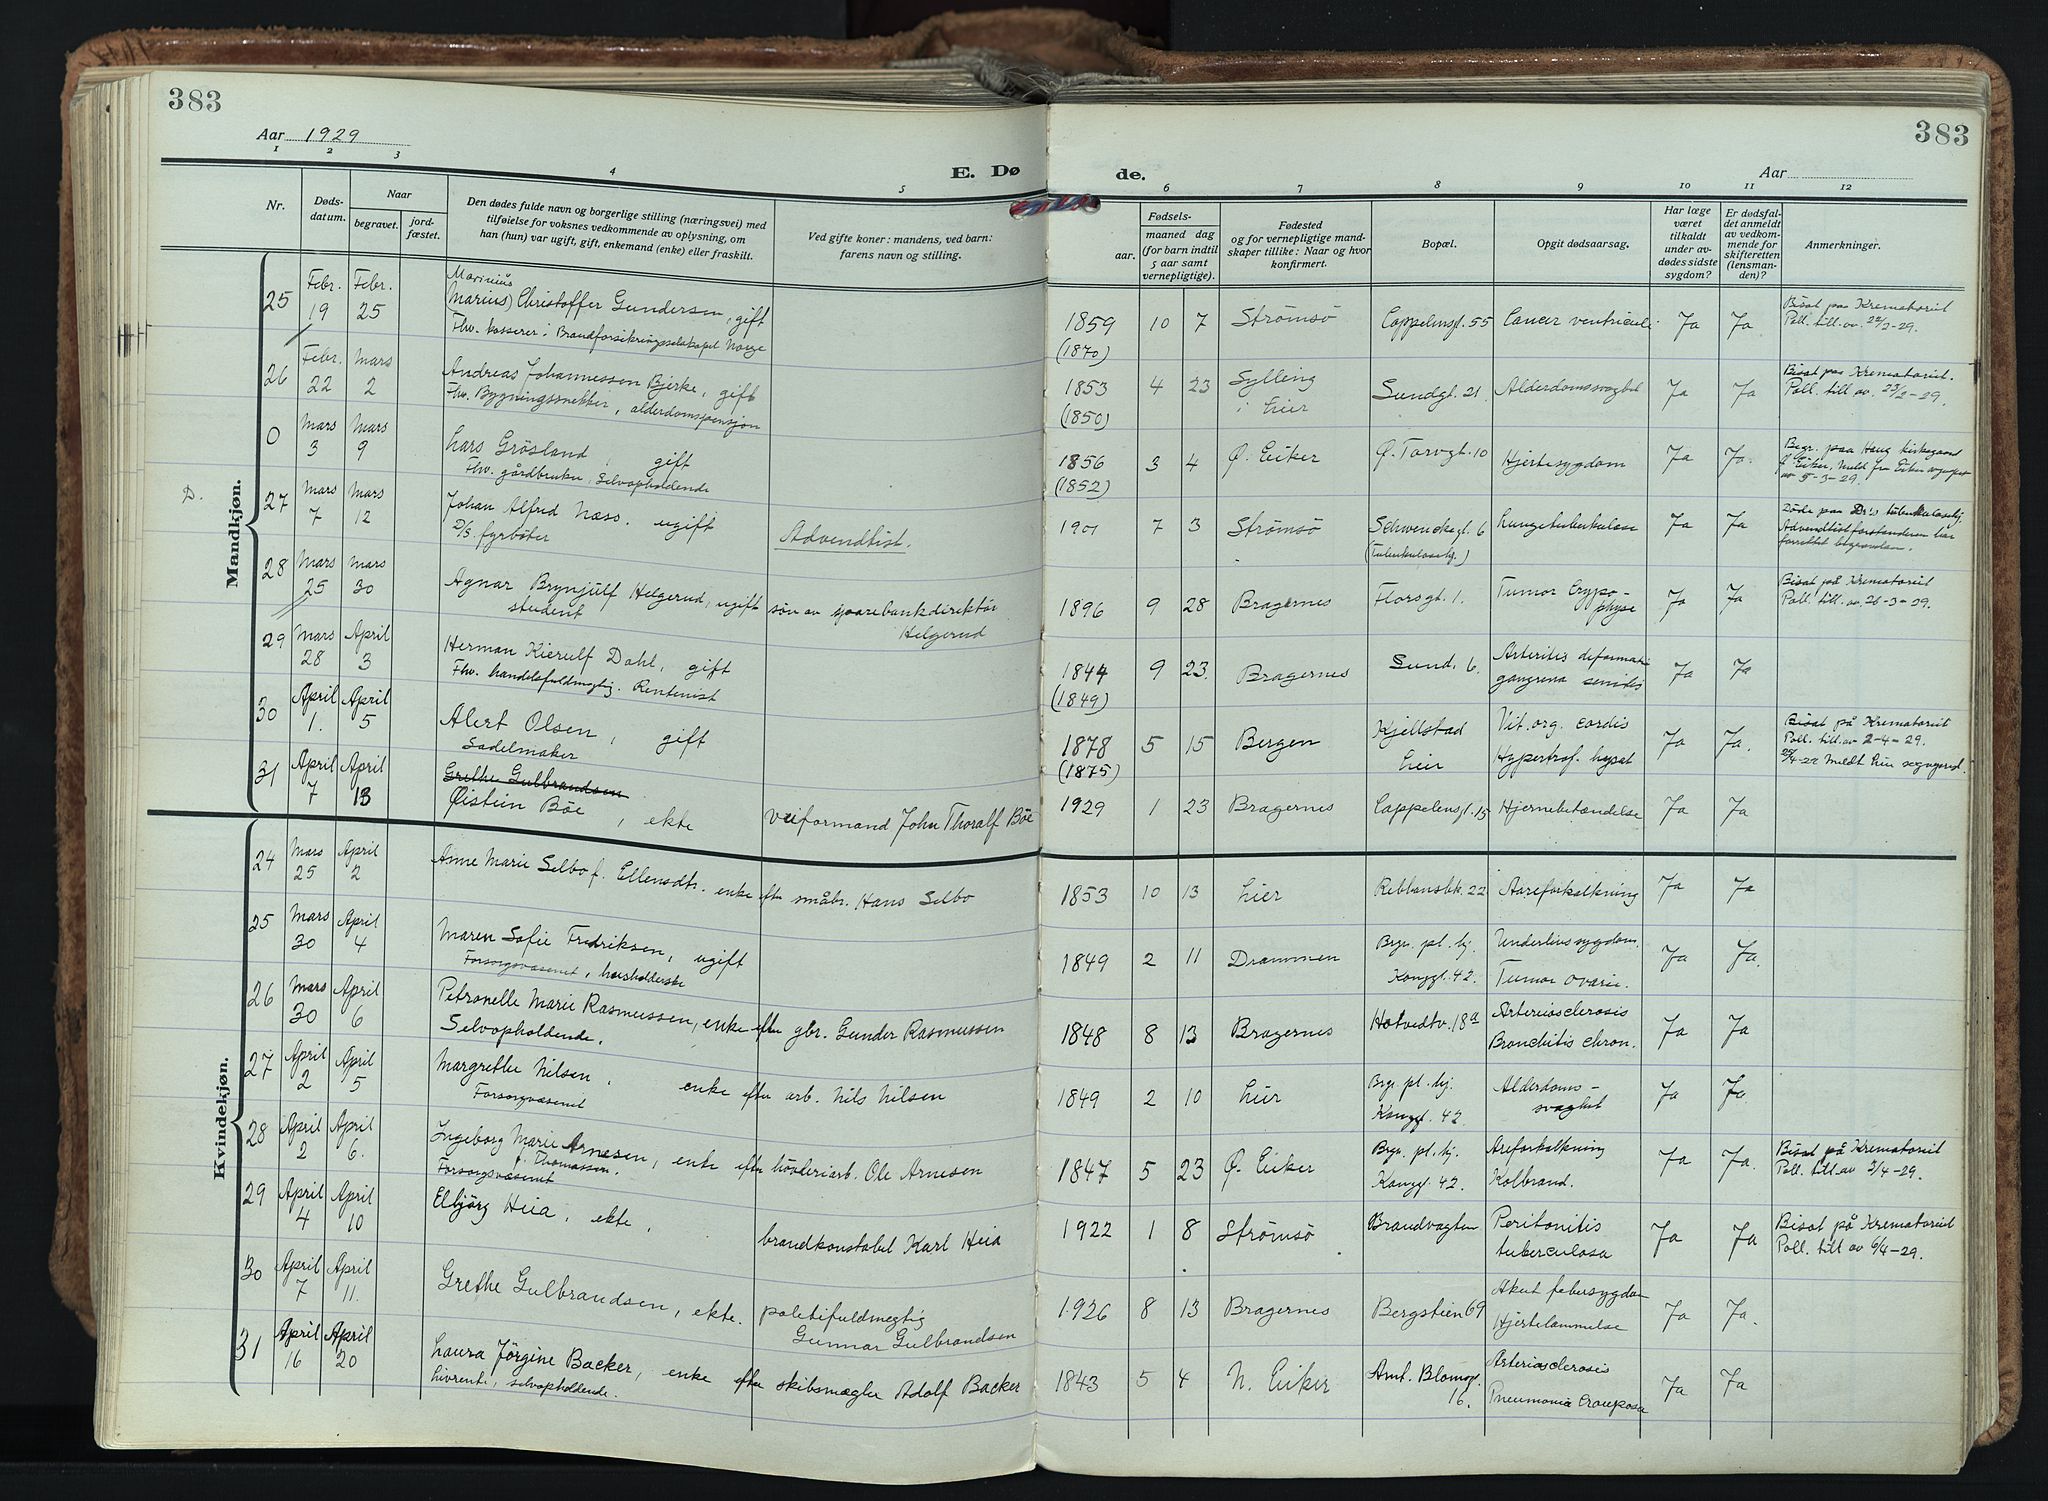 383
Aar 1929
E. Dø
1 2 3 4 5
Nr.
Døds-
datum.
Naar
begravet.
jord-
fæstet.
Den dødes fulde navn og borgerlige stilling (næringsvei) med
tilføielse for voksnes vedkommende av oplysning, om
han (hun) var ugift, gift, enkemand (enke) eller fraskilt.
Ved gifte koner: mandens, ved barn:
farens navn og stilling.
Mandkjøn.
25 Febr. 19 Febr. 25
Marinius
(Marius) Christoffer Gundersen, gift
Fhv. kasserer i Brandforsikringsselskapet Norge
26 Febr. 22 Mars 2
Andreas Johannessen Bjerke, gift
Fhv. Bygningssnekker, alderdomspensjon
0 Mars 3 Mars 9
Lars Grösland, gift
Fhv. gårdbruker, Selvopholdende
D. 27 Mars 7 Mars 12
Johan Alfred Næss. ugift
D/S. fyrböter
Advendtist.
28 Mars 25 Mars 30
Agnar Brynjulf Helgerud, ugift søn av sparebankdirektör
student Helgerud
29 Mars 28 April 3
Herman Kierulf Dahl, gift
Fhv. handelsfuldmegtig. Rentenist
30 April 1. April 5
Alert Olsen, gift
Sadelmaker
31 April 7 April 13
Grethe Gulbrandsen
Øistein Böe, ekte veiformand John Thoralf Böe
Kvindekjøn.
24 Mars 25 April 2
Anne Marie Selbo f. Ellensdtr. enke efter småbr. Hans Selbo
25 Mars 30 April 4
Maren Sofie Fredriksen, ugift
Forsorgsvæsenet, husholderske
26 Mars 30 April 6
Petronelle Marie Rasmussen, enke efter gbr. Gunder Rasmussen
Selvopholdende.
27 April 2 April 5
Margrethe Nilsen, enke efter arb. Nils Nilsen
Forsorgvæsenet
28 April 2 April 6.
Ingeborg Marie Arnesen, enke efter høvleriarb. Ole Arnesen
f. Thomassen.
Forsorgsvæsenet
29 April 4 April 10
Elbjörg Heia, ekte,
brandkonstabel Karl Heia
30 April 7 April 11.
Grethe Gulbrandsen, ekte. politifuldmegtig
Gunnar Gulbrandsen
31 April 16 April 20
Laura Jørgine Backer, enke efter skibsmægler Adolf Backer
Livrente, selvopholdende.
383
de.
Aar
6 7 8 9 10 11 12
Fødsels-
aar.
maaned dag
(for barn indtil
5 aar samt
vernepligtige).
Fødested
og for vernepligtige mand-
skaper tillike: Naar og hvor
konfirmert.
Bopæl.
Opgit dødsaarsag.
Har læge
været
tilkaldt
under av-
dødes sidste
sygdom?
Er dødsfal-
det anmeldt
av vedkom-
mende for
skifteretten
(lensman-
den)?
Anmerkninger.
1859 10 7 Strømsö Cappelensgt. 55 Cancer ventriculi Ja Ja Bisat paa Krematoriet
(1870) Poll. till. av. 22/2-29.
1853 4 23 Sylling Sundgt. 21 Alderdomssvaghet Ja Ja Bisat paa Krematoriet.
(1850) i Lier Poll. till av. 25/2-29.
1856 3 4 Ø. Eiker Ø. Torvgt. 10 Hjertesygdom Ja Ja. Begr. paa Haug kirkegaard
(1852) Ø. Eiker, Meld fra Eiker sogneprest
av 5-3-29.
1901 7 3 Strømsö Schwenckegt. 6 Lungetuberkulose Ja Ja Döde paa Dr's tuberkulosehj.
(Tuberkulosehj.) Advendtistforstanderen har
forrettet begravelsen.
1896 9 28 Bragernes Florsgt. 1. Tumor Crypo- Ja Ja Bisat på Krematoriet
physe Poll. till. av. 26-3-29.
1844 9 23. Bragernes Sund. 6. Arteritis deformatis Ja Ja
(1849) gangrena senitis
1878 5 15 Bergen Kjellstad Vit. org. cordis Ja Ja. Bisat på Krematoriet
(1875) Lier Hypertrof. hepat Poll. till. av 2-4-29.
1929 1 23 Bragernes Cappelensgt. 15 Hjernebetændelse Ja Ja
1853 10 13 Lier Rebbansbk. 22 Aareforkalkning Ja Ja
1849 2 11 Drammen Brgr. pl. hj. Underlivssygdom. Ja Ja.
Konggt. 42. Tumor Ovarie.
1848 8 13 Bragernes Hotvedtv. 18a Arteriosclerosis Ja Ja
Bronchitis chron.
1849 2 10 Lier Brgr. pl. hj. Alderdoms- Ja Ja
Konggt. 42 svaghet
1847 5 23 Ø. Eiker Brgr. pl. hj. Areforkalkning Ja Ja. Bisat på Krematoriet
Konggt. 42. Kolbrand. Poll. till. av 3/4-29.
1922 1 8 Strømsö Brandvagten Peritonitis Ja Ja Bisat på Krematoriet
tuberculosa Poll. till av 6/4-29.
1926 8 13 Bragernes Bergstien 69 Akut febersygdom Ja Ja.
Hjertelammelse
1843 5 4 N. Eiker Amt. Blomsgt. Arteriosclerosis Ja Ja
16. Pneumonia Crouposa